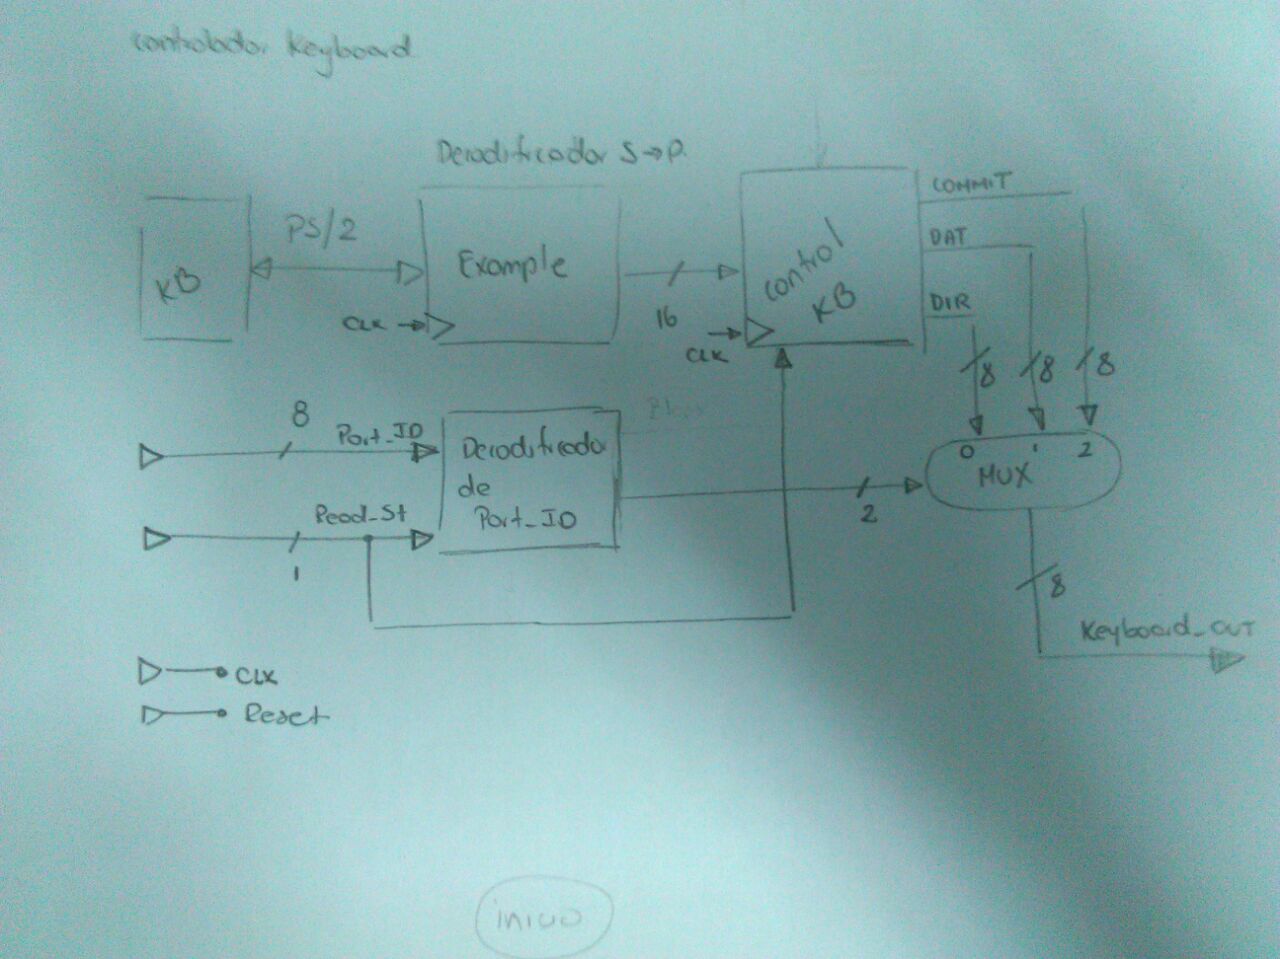 Controlador Keyboard
Decodificador S→P.
KB
PS/2
Example
CLK
16
CLK
Control
KB
COMMIT
DAT
DIR
8
8
8
8
Port_ID
Read_St
1
Decodificador
de
Port_ID
2
0 1 2
MUX
8
Keyboard_OUT
CLK
Reset
inicio